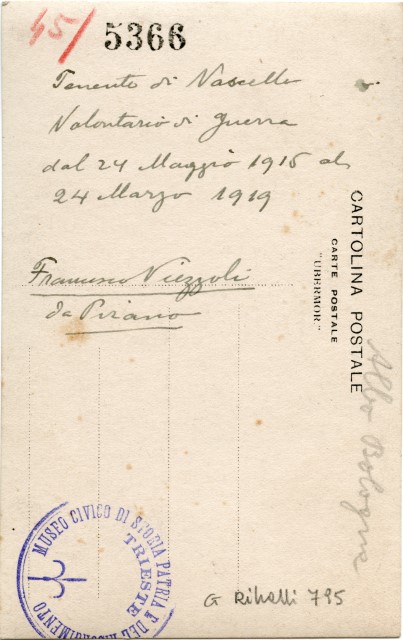 45/ 5366
Tenente di Vascello
Volontario di Guerra
dal 24 Maggio 1915 al
24 Marzo 1919
Francesco Viezzoli
da Pirano
CARTOLINA POSTALE
CARTE POSTALE
"UBERMOR."
Albo Bologna
MUSEO CIVICO DI STORIA PATRIA E DEL RISORGIMENTO
TRIESTE
G Rihelli 795